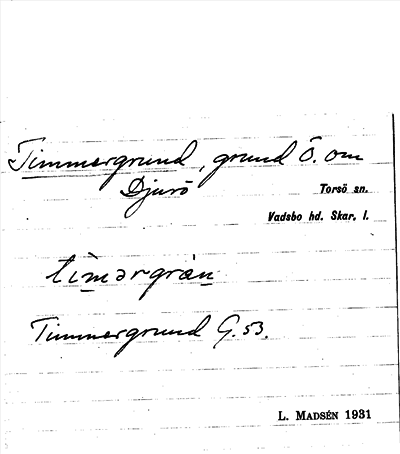 Timmergrund, grund Ö. om
Djurö
Torsö sn.
Vadsbo hd. Skar. l.
timərgrən
Timmergrund G. 53.
L. MADSÉN 1931